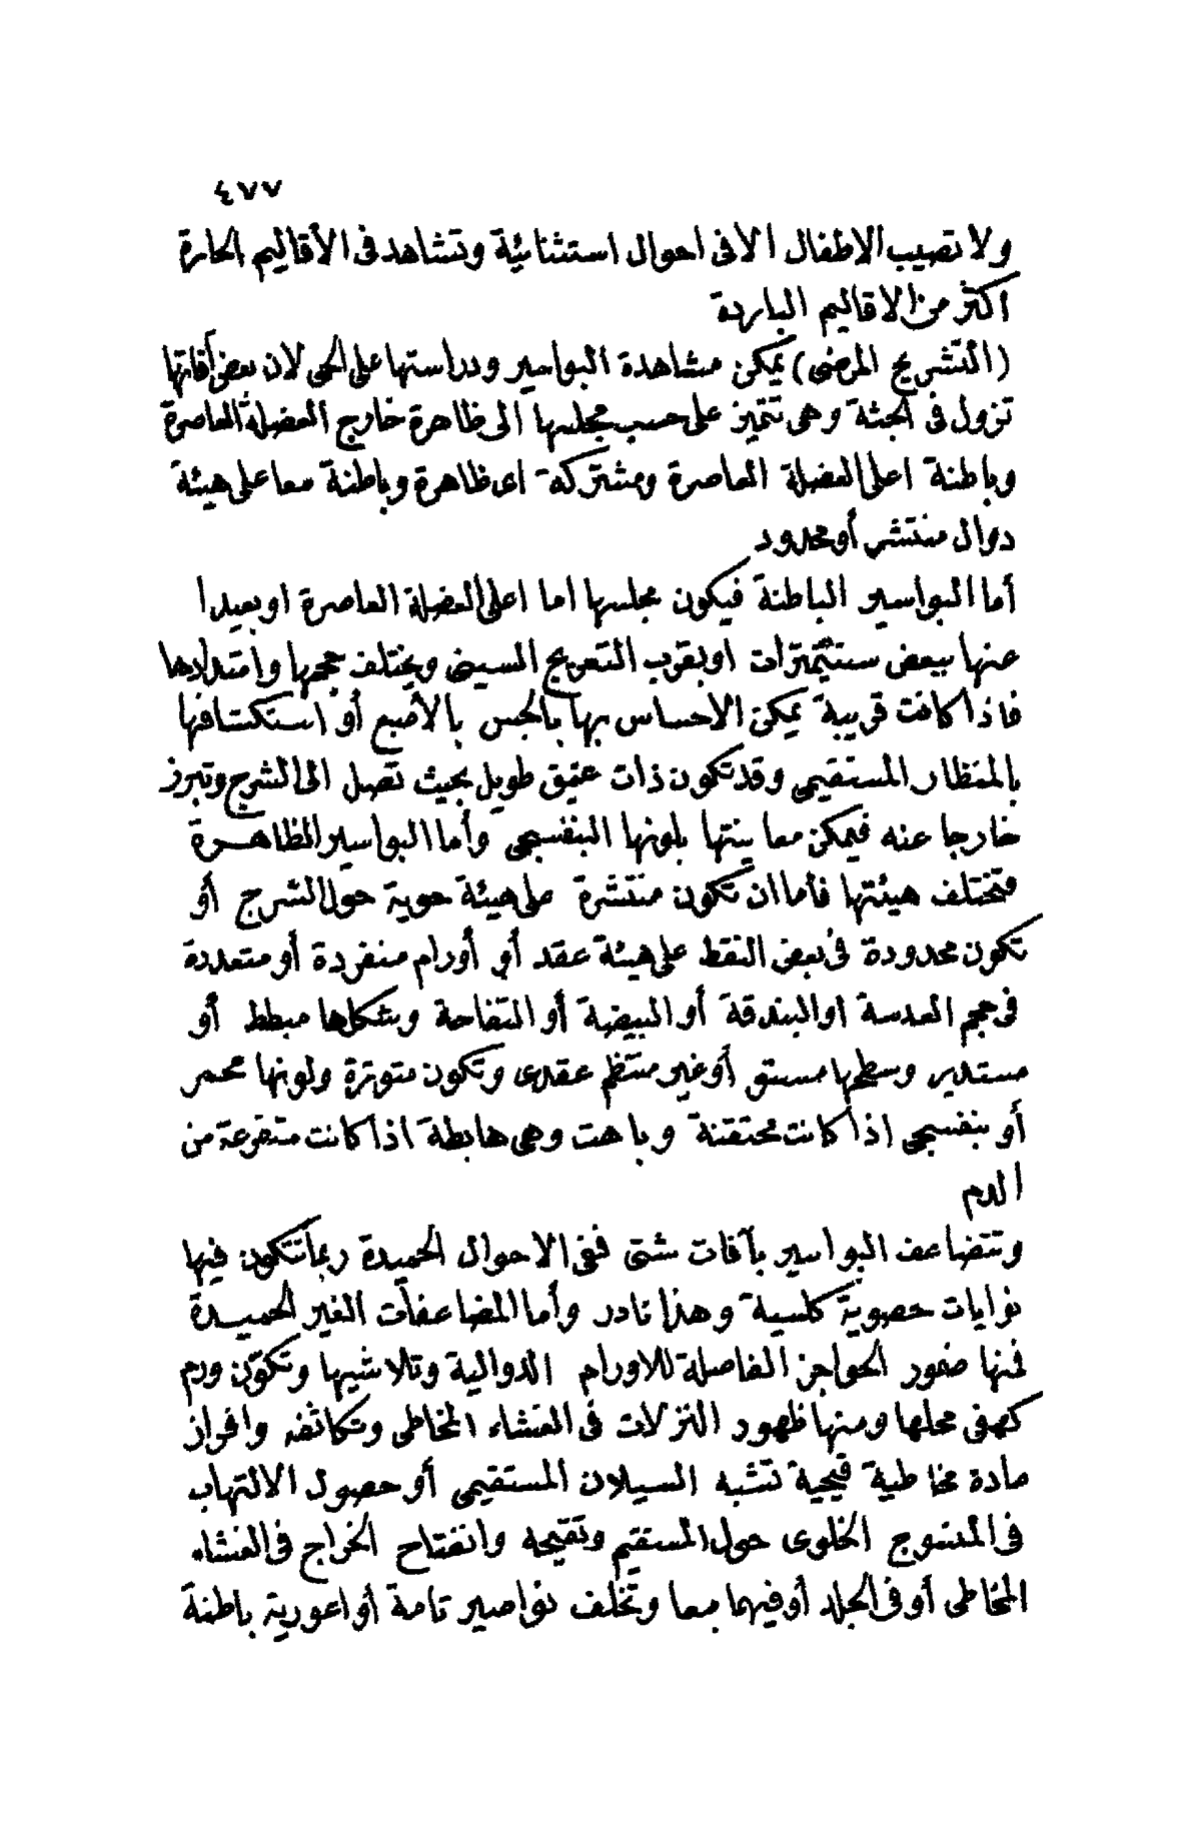 ٤٧٧
ولا تصيب الاطفال الا فى احوال استثنائية وتشاهد فى الأقاليم الحارة
اكثر من الاقاليم الباردة
(التشريح المرضى) يمكن مشاهدة البواسير ودراستها على الحى لان بعض آفاتها
تزول فى الجثة وهى تتميز على حسب مجلسها الى ظاهرة خارج العضلة العاصرة
وباطنة اعلى العضلة العاصرة ومشتركة اى ظاهرة وباطنة معا على هيئة
دوال منتشر أو محدود
أما البواسير الباطنة فيكون مجلسها اما اعلى العضلة العاصرة او بعيدا
عنها ببعض سنتيمترات او بقرب التعريج السينى ويختلف حجمها وامتدادها
فاذا كانت قريبة يمكن الاحساس بها بالجس بالأصبع أو استكشافها
بالمنظار المستقيمى وقد تكون ذات عنيق طويل بحيث تصل الى الشرج وتبرز
خارجا عنه فيمكن معاينتها بلونها البنفسجى وأما البواسير الظاهـرة
فتختلف هيئتها فأما ان تكون منتشرة على هيئة حوية حول الشرج أو
تكون محدودة فى بعض النقط على هيئة عقد أو أورام منفردة أو متعددة
فى حجم العدسة او البندقة أو البيضة أو التفاحة وشكلها مبطط أو
مستدير وسطحها مستو أو غير منتظم عقدى وتكون متوترة ولونها محمر
أو بنفسجى اذا كانت محتقنة وباهت وهى هابطة اذا كانت متفرعة من
الدم
وتتضاعف البواسير بآفات شتى ففى الاحوال الحميدة ربما تتكون فيها
نوايات حصوية كلسية وهذا نادر وأما المضاعفات الغير الحميـدة
فمنها ضمور الحواجز الفاصلة للاورام الدوالية وتلاشيها وتكوّن ورم
كهفى محلها ومنها ظهور النزلات فى الغشاء المخاطى وتكاثفه وافراز
مادة مخاطية قيحية تشبه السيلان المستقيمى أو حصول الالتهاب
فى المنسوج الخلوى حول المستقيم وتقيحه وانفتاح الخراج فى الغشاء
المخاطى أو فى الجلد أو فيهما معا وتخلف نواصير تامة أو اعورية باطنة